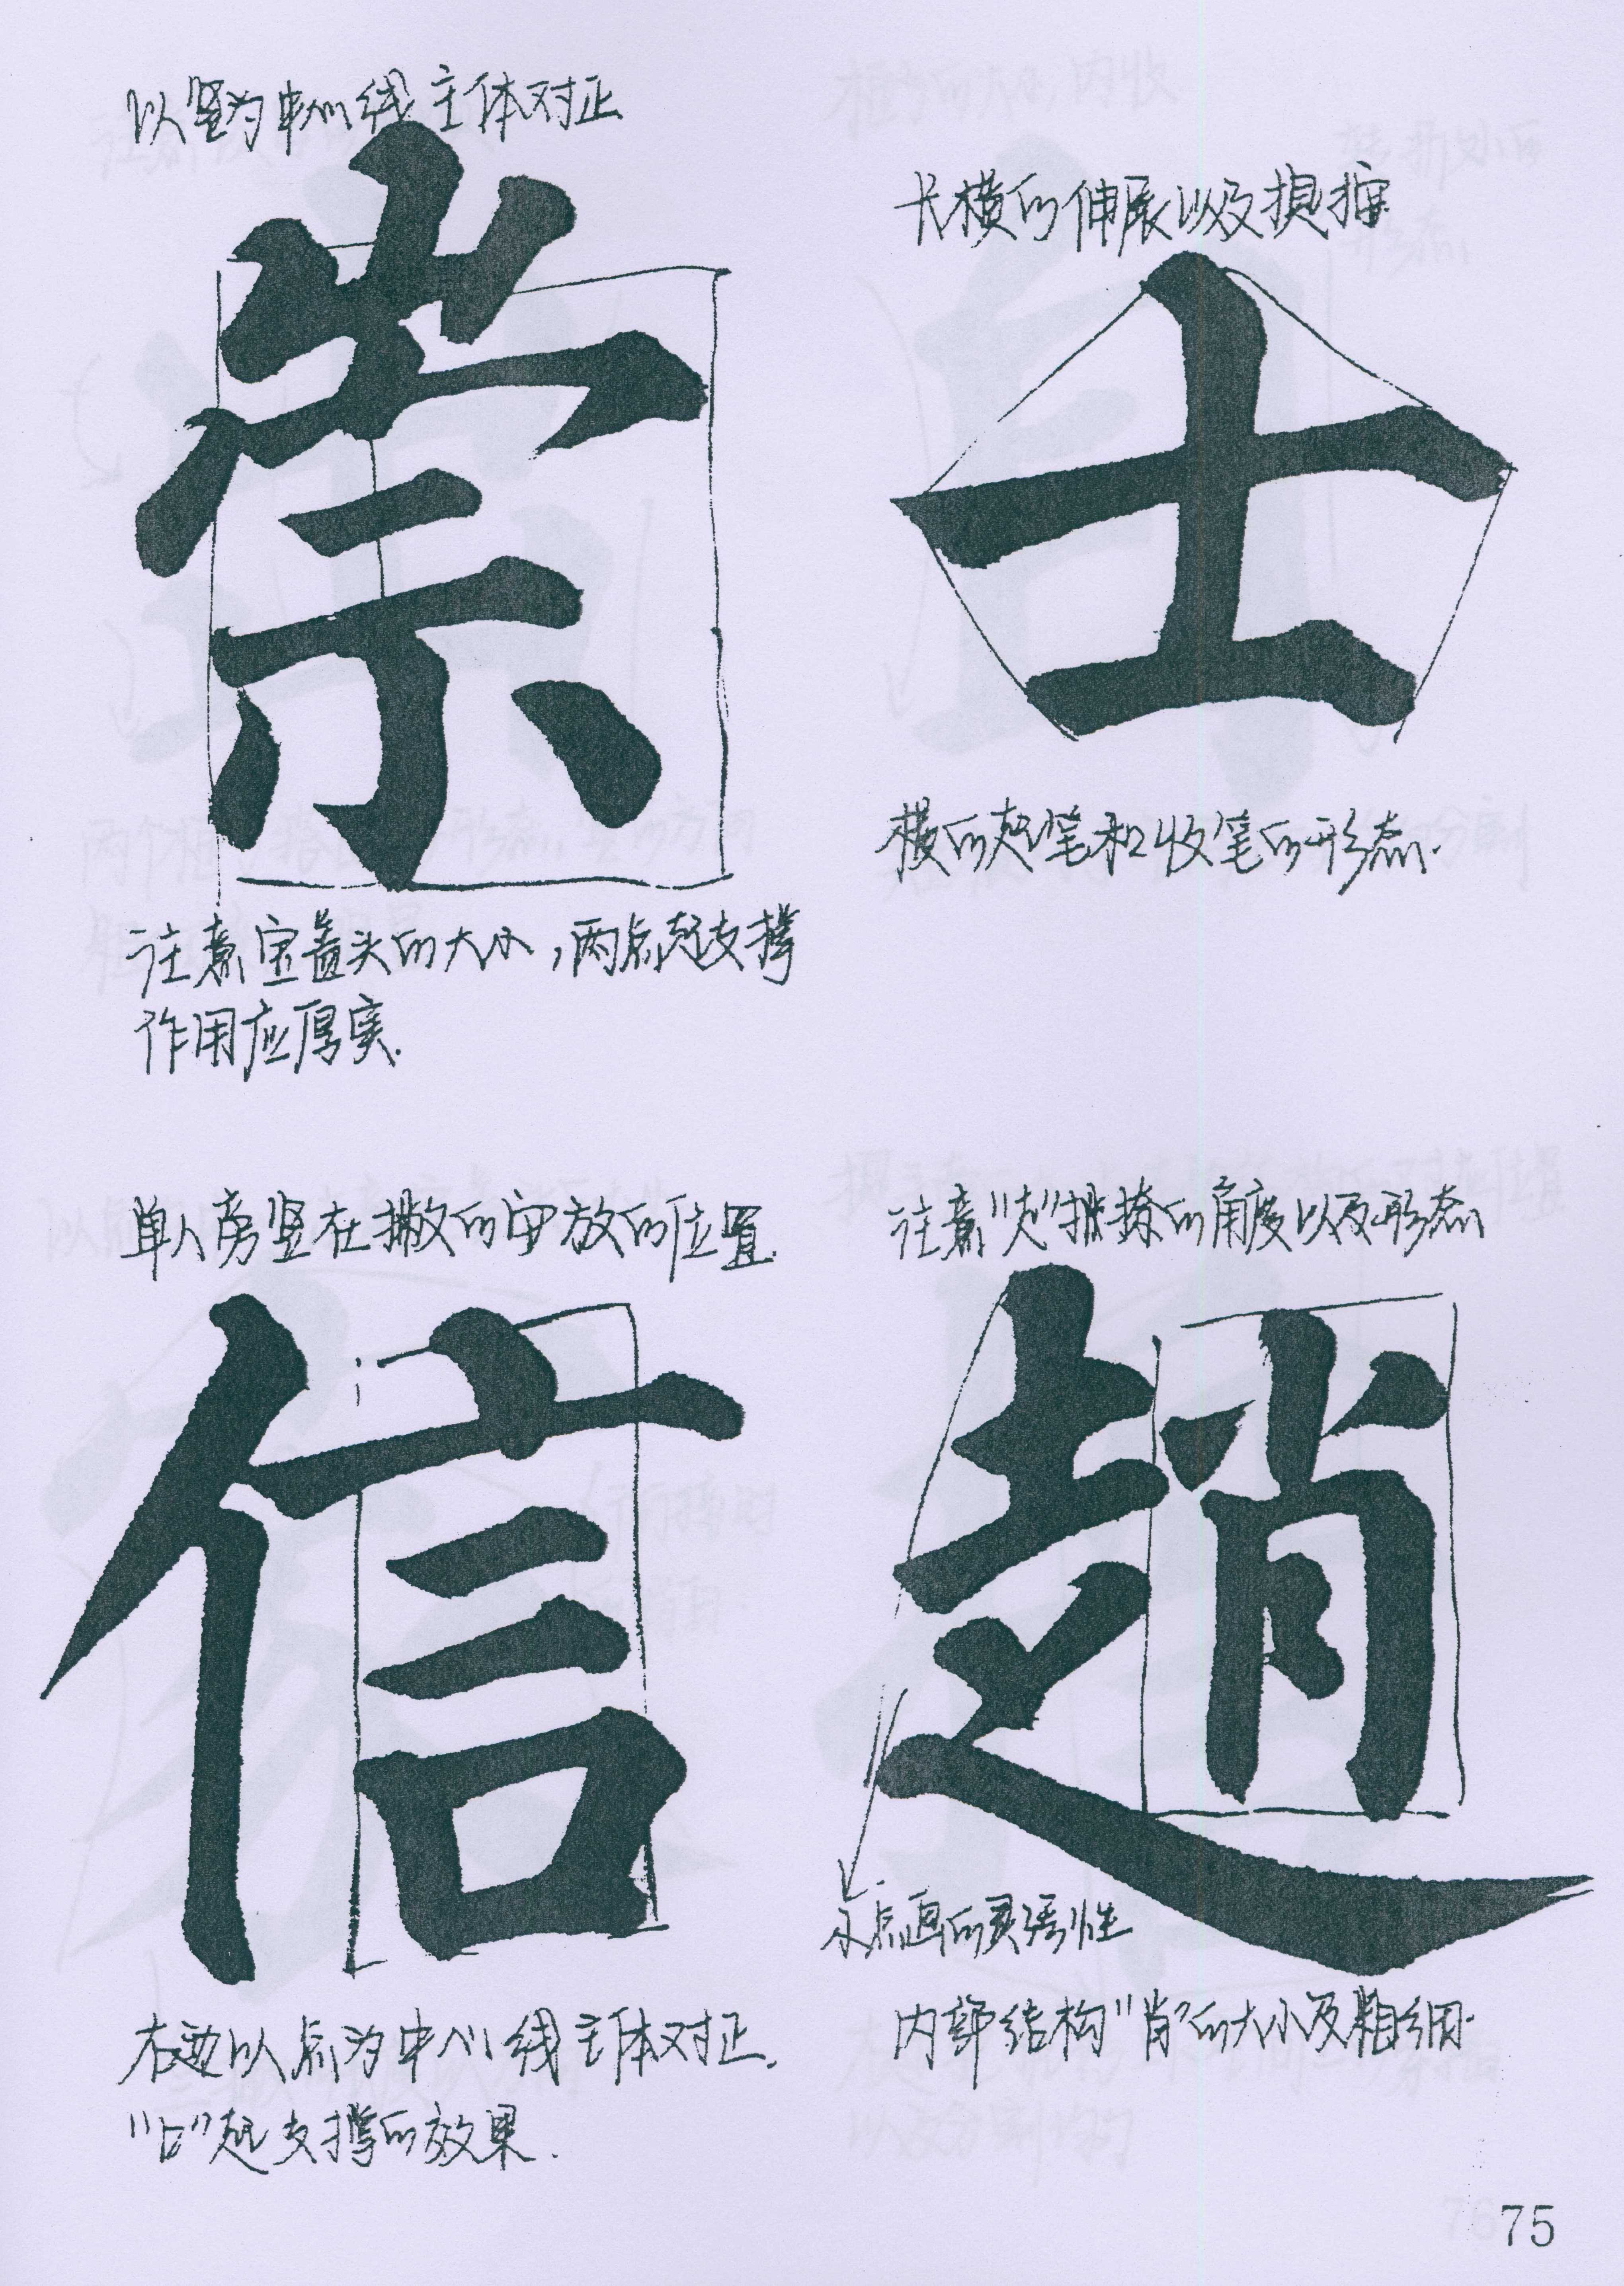 以竖为中心线主体对正
崇
注意宝盖头的大小，两点起支撑
作用应厚实.
长横的伸展以及
士
横的起笔和收笔的形态.
单人旁竖在撇的中放的位置.
信
右边以点为中心线主体对正.
"口"起支撑的效果.
注意"走"捺的角度以及形态
趙
点画的灵活性
内部结构"肖"的大小及粗细.
75